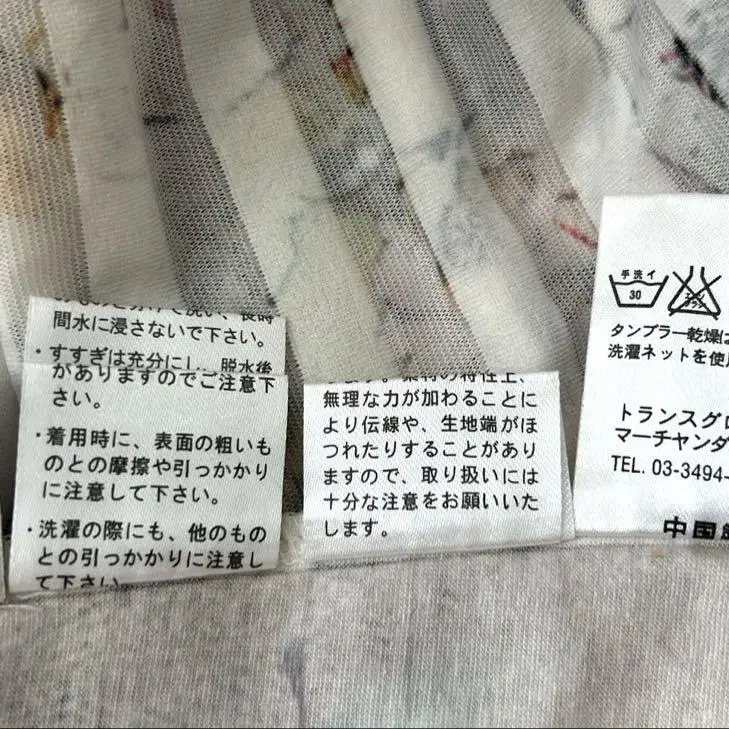 のものと分けて洗い、長時
間水に浸さないで下さい。
・すすぎは充分にし、脱水後
がありますのでご注意下
さい。
・着用時に、表面の粗いも
のとの摩擦や引っかかり
に注意して下さい。
・洗濯の際にも、他のもの
との引っかかりに注意し
て下さい。
ます。素材の特性上、
無理な力が加わることに
より伝線や、生地端がほ
つれたりすることがあり
ますので、取り扱いには
十分な注意をお願いいた
します。
手洗イ
30
エンソサラシ
タンブラー乾燥は
洗濯ネットを使用
トランスグロ
マーチャンダ
TEL. 03-3494-
中国製